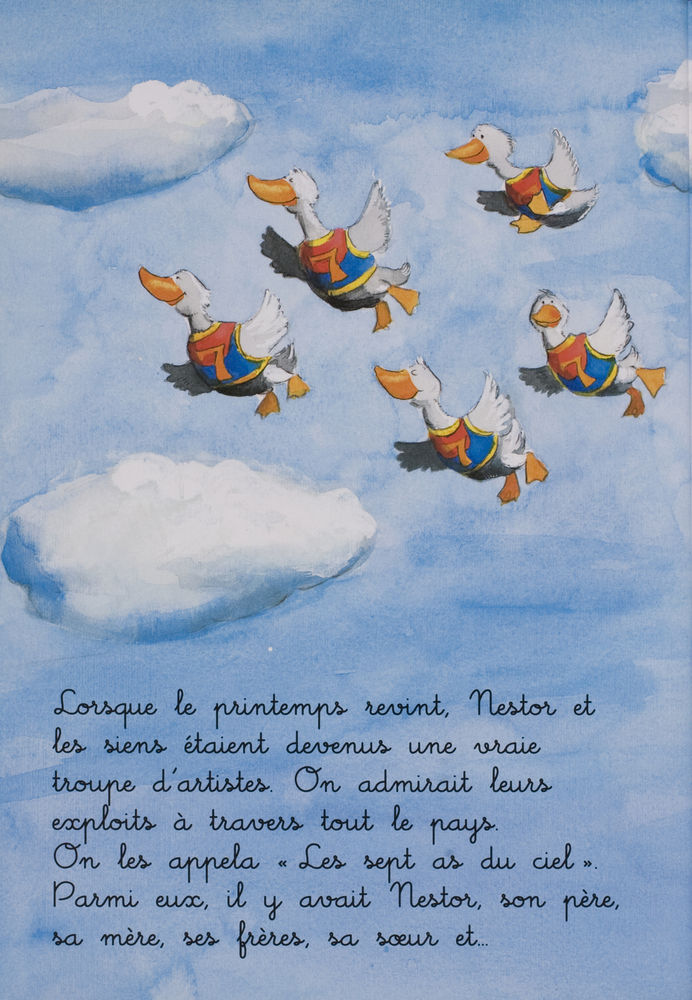 7
7
7
7
7
Lorsque le printemps revint, Nestor et
les siens étaient devenus une vraie
troupe d'artistes. On admirait leurs
exploits à travers tout le pays.
On les appela « Les sept as du ciel ».
Parmi eux, il y avait Nestor, son père,
sa mère, ses frères, sa sœur et...